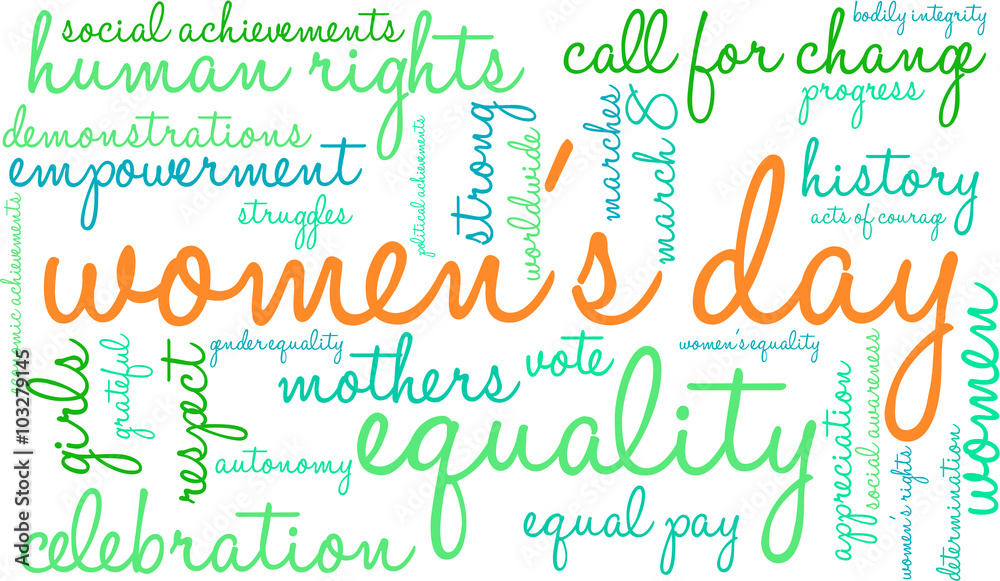 social achievements
bodily integrity
human rights
call for change
progress
demonstrations
empowerment
political achievements
strong
worldwide
marches
march 8
history
struggles
acts of courage
women's day
economic achievements
girls
grateful
respect
gender equality
mothers
vote
women's equality
equality
appreciation
social awareness
women
autonomy
women's rights
determination
equal pay
celebration
Adobe Stock | #103279145
Adobe Stock